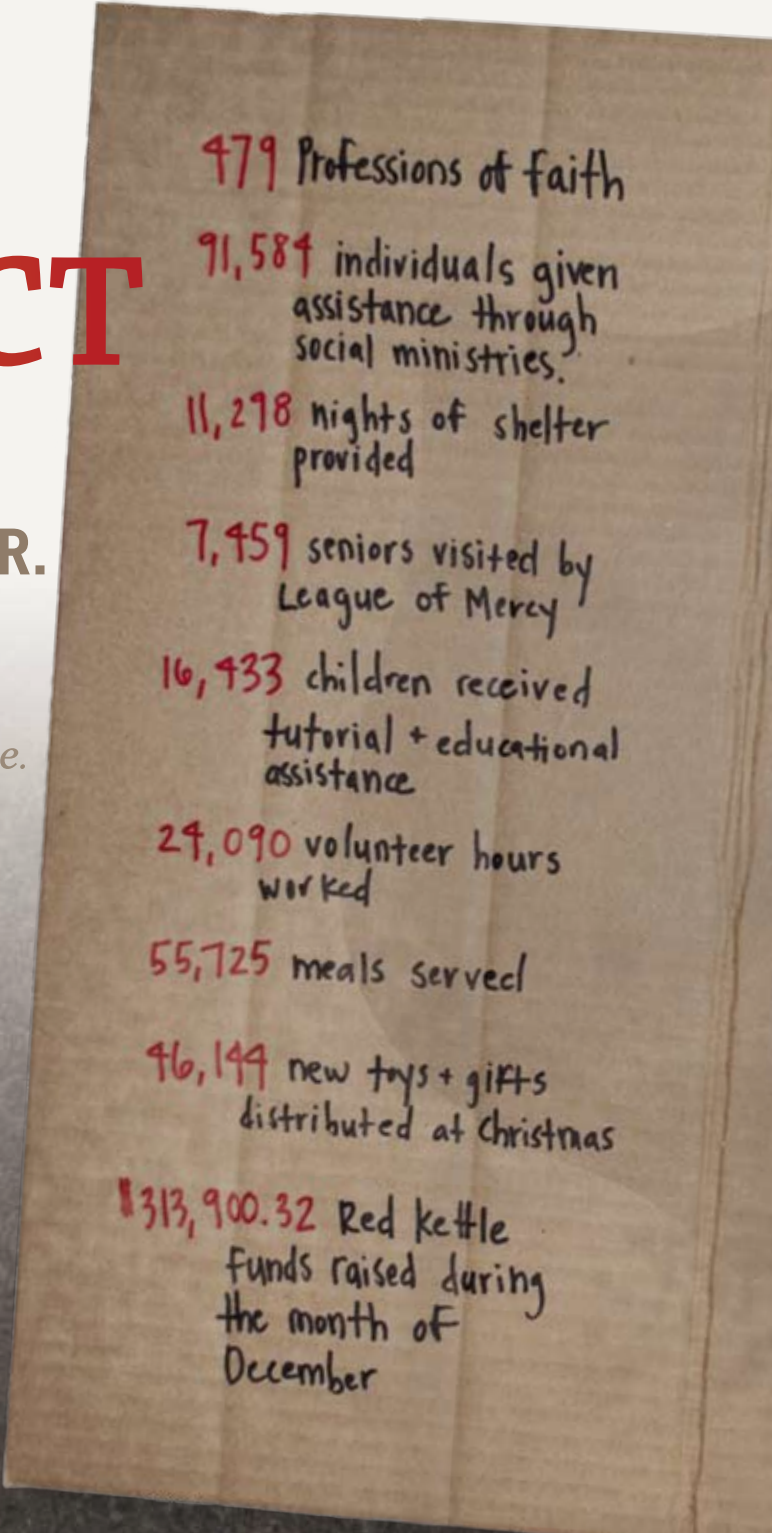 479 Professions of faith
CT
91,584 individuals given
assistance through
social ministries.
11,298 nights of shelter
provided
R.
7,459 seniors visited by
League of Mercy
16,433 children received
tutorial + educational
e.
assistance
24,090 volunteer hours
worked
55,725 meals served
46,144 new toys + gifts
distributed at Christmas
$313,900.32 Red kettle
funds raised during
the month of
December